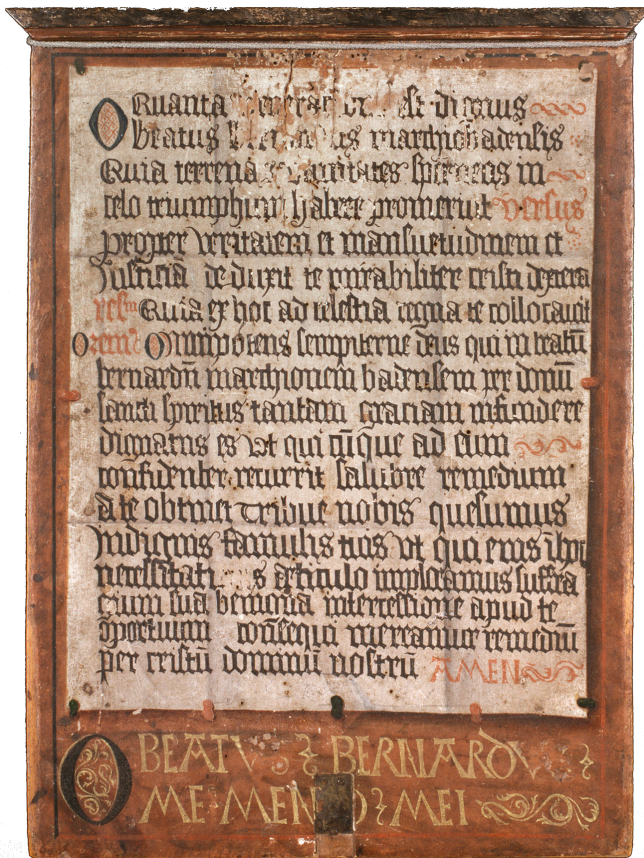 O Quanta est dignus
beatus marchio badensis
Quia terrena spernens in
celo triumphum habere promeruit versus
propter veritatem et mansuetudinem et
Justiciā deduxit te mirabiliter cristi dextera
resm Quia ex hoc ad celestia regna te collocauit
Oremus Omnipotens sempiterne deus qui in beatū
bernardū marchionem badensem per donū
sancti spiritus tantam graciam infundere
dignatus es vt qui cūque ad eum
confidenter recurrit salubre remedium
a te obtinet Tribue nobis quesumus
Indignis famulis tuis vt qui eius
necessitatis articulo imploramus suffra
gium sua benigna intercessione apud te
oportunum consequi mereamur remediū
per cristū dominū nostrū AMEN
O BEATVS BERNARDVS
ME MENTO MEI